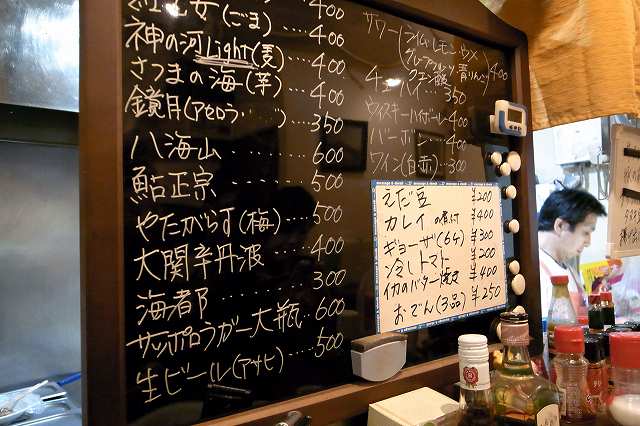 紅乙女(ごま) 400
神の河Light(麦) 400
さつまの海(芋) 400
鏡月(アセロラ・・・・) 350
八海山・・・・・・600
鮎正宗・・・・・・500
やたがらす(梅)・・・500
大関辛丹波・・・・400
海都・・・・・・300
サッポロラガー大瓶・・600
生ビール(アサヒ)・・・500
サワー(ライム・レモン・ウメ
グレープフルーツ・青りんご
クエン酸) 400
チューハイ・・・350
ウイスキーハイボール・400
バーボン・・・400
ワイン(白・赤)・・300
えだ豆 ¥200
カレイの煮付 ¥400
ギョーザ(6ケ) ¥300
冷しトマト ¥200
イカのバター焼 ¥400
おでん(3品) ¥250